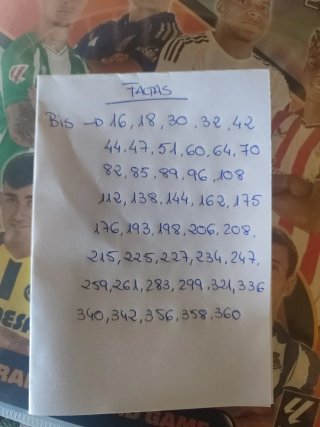 FALTAS
Bis → 16, 18, 30, 32, 42
44, 47, 51, 60, 64, 70
82, 85, 89, 96, 108
112, 138, 144, 162, 175
176, 193, 198, 206, 208,
215, 225, 227, 234, 247,
259, 261, 283, 299, 321, 336
340, 342, 356, 358, 360
GAME